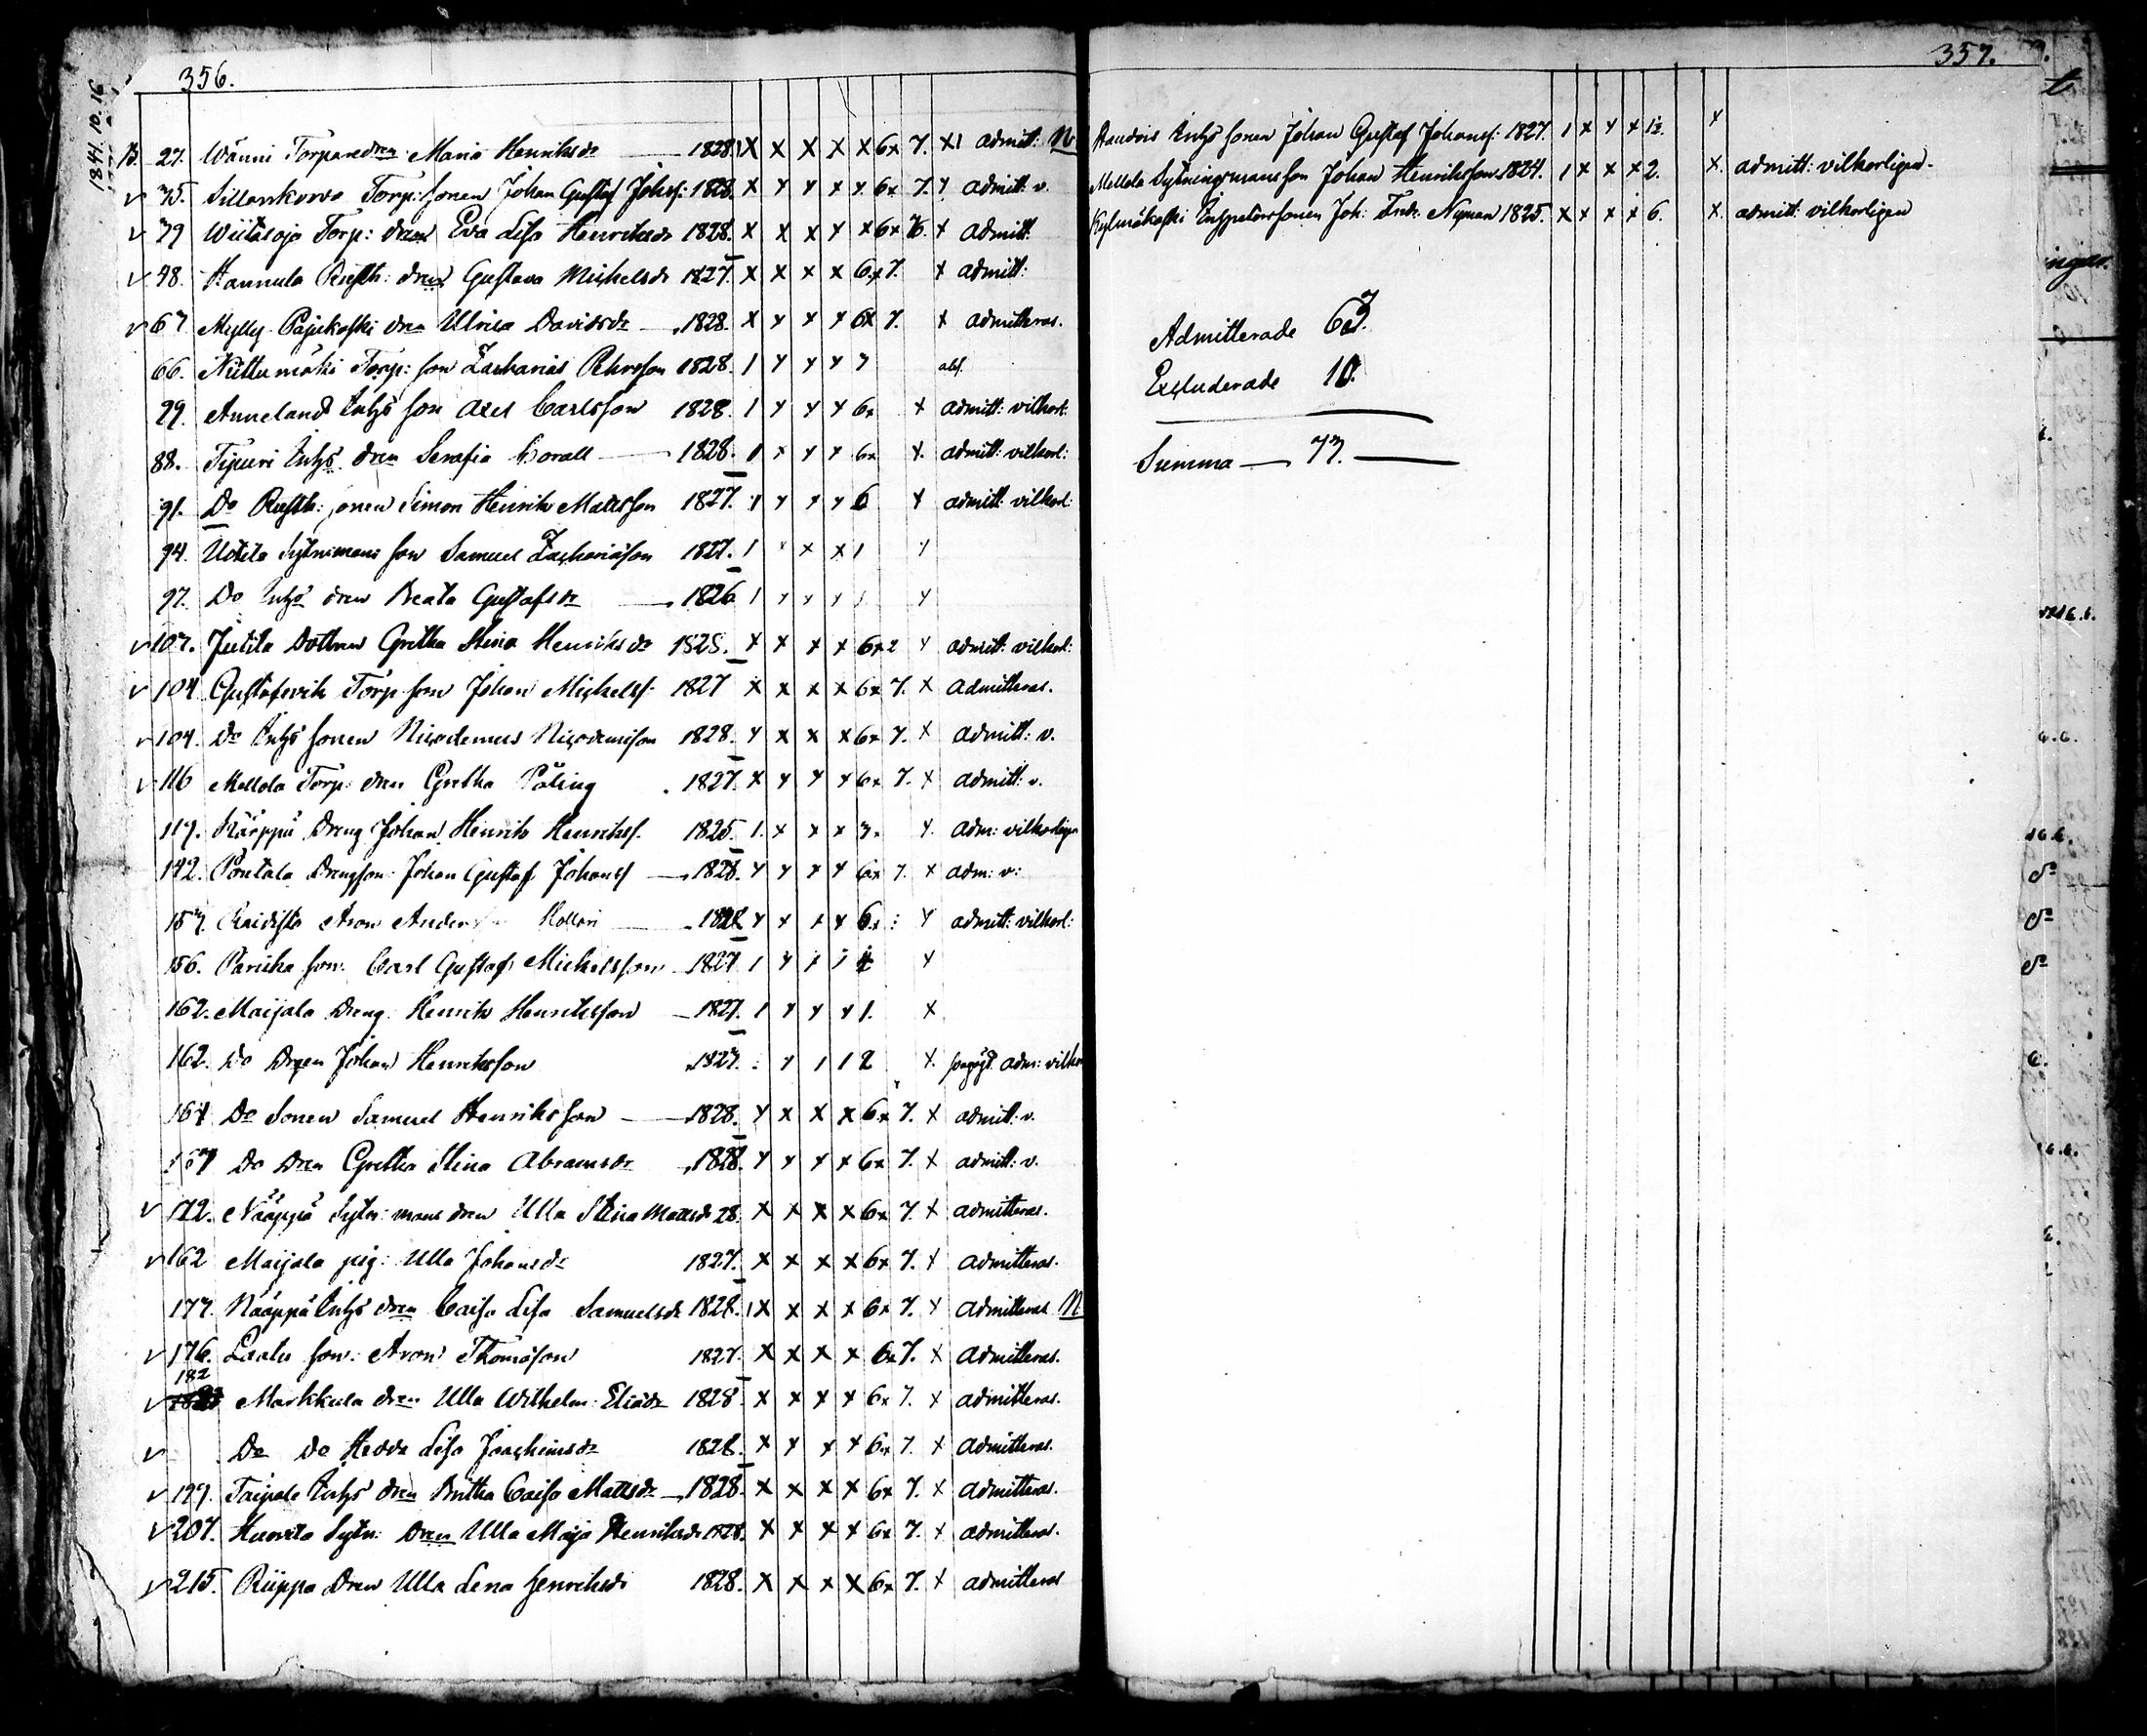 356.
1841. 10. 16
27. Wänni Torparedren Maria Henriksdr 1828. X X X X X 6x 7. X1 admitt: N
v 35. Sillankorva Torp: sonen Johan Gustaf Johsf: 1828. x x x x x 6x 7. x admitt: v.
v 79 Wiitasoja Torp: dren Eva Lisa Henriksdr 1828. x x x x x 6x 7. x admitt.
v 48. Hannula Rusth: dren Gustava Michelsdr 1827. x x x x 6x 7. x admitt:
v 67 Mylly Pajukoski dren Ulrica Davidsdr 1828. x x x x 6x 7. x admitteras.
66. Niittumäki Torp: son Zacharias Pehrsson 1828. 1 x x x 7 abs.
29. Anneland Inhys son Axel Carlsson 1828. 1 x x x 6x x admitt: vilkorl:
88. Tipuri Inhys dren Serafia Corall 1828. 1 x x x 6x x. admitt: vilkorl:
91. Do Rusth: sonen Simon Henrik Mattsson 1827. 1 x x x 6 x admitt: vilkorl:
94. Uotila Sytnimans son Samuel Zachariäson 1827. 1 x x x 1 x
97. Do Inhys dren Beata Gustafsdr 1826 1 x x x 1 x
v 107. Jutila Dottren Gretha Stina Henriksdr 1828. x x x x 6x2 x admitt: vilkorl:
v 104 Gustafsvik Torp son Johan Michelsf: 1827 x x x x 6x 7. x admitteras.
v 104. Do Inhys sonen Nicodemus Nicodemisson 1828. x x x x 6x 7. x admitt: v.
v 116 Mellola Torp: dren Gretha Påling 1827. x x x x 6x 7. x admitt: v.
117. Käärppä Dreng Johan Henrik Henriksf. 1825. 1. x x x 3x x. adm: vilkorligen
142. Pöntälä Drengson: Johan Gustaf Johansf 1828. x x x x 6x 7. x adm: v:
157. Raidista Aron Anders Kollari 1828 x x x x 6x : x admitt: vilkorl:
156. Parikka son: Carl Gustaf Michelsson 1827 1 x 1 1 x
162. Maijala Dreng Henrik Henriksson 1827. 1 x x x 1. x
162. Do Drgen Johan Henriksson 1827. : x 1 1 2 x. adm: vilkor
167 Do Sonen Samuel Henriksson 1828. x x x x 6x 7. x admitt: v.
167 Do Dren Gretha Stina Abramsdr 1828. x x x x 6x 7. x admitt: v.
v 172. Nääppä Sytn: mans dren Ulla Stina Mattsdr 28. x x x x 6x 7. x admitteras.
v 162 Maijala pig: Ulla Johansdr 1827. x x x x 6x 7. x admitteras.
177. Nääppä Inhys dren Caisa Lisa Samuelsdr 1828. 1 x x x x 6x 7. x admitteras N
v 176. Laalu son: Aron Thomäson 1827. x x x x 6x 7. x admitteras.
182
v Markkula dren Ulla Wilhelm: Eliädr 1828 x x x x 6x 7. x admitteras.
v Do Do Hedda Lisa Joachimsdr 1828. x x x x 6x 7. x admitteras.
v 199. Taipale Inhys dren Britha Caisa Mattsdr 1828. x x x x 6x 7. x admitteras.
v 207. Huovila Sytn: Dren Ulla Maja Henriksdr 1828. x x x x 6x 7. x admitteras.
v 215. Riippa Dren Ulla Lena Henriksdr 1828. x x x x 6x 7. x admitteras
357.
Inhys sonen Johan Gustaf Johansf: 1827. 1 x x x 1½. x
Mellola Sytningsmansson Johan Henriksson 1824. 1 x x x 2. x. admitt: vilkorligen.
Kylmäkoski Inspectorssonen Joh: Fredr. Nyman 1825. x x x x 6. x. admitt: vilkorligen
Admitterade 67.
Excluderade 10.
Summa 77.